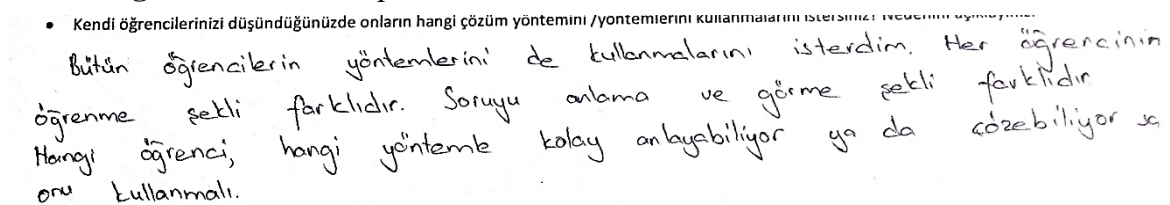 • Kendi öğrencilerinizi düşündüğünüzde onların hangi çözüm yöntemini /yöntemlerini kullanmalarını istersiniz? Nedenini açıklayınız.
Bütün öğrencilerin yöntemlerini de kullanmalarını isterdim. Her öğrencinin
öğrenme şekli farklıdır. Soruyu anlama ve görme şekli farklıdır
Hangi öğrenci, hangi yöntemle kolay anlayabiliyor ya da çözebiliyor sa
onu kullanmalı.